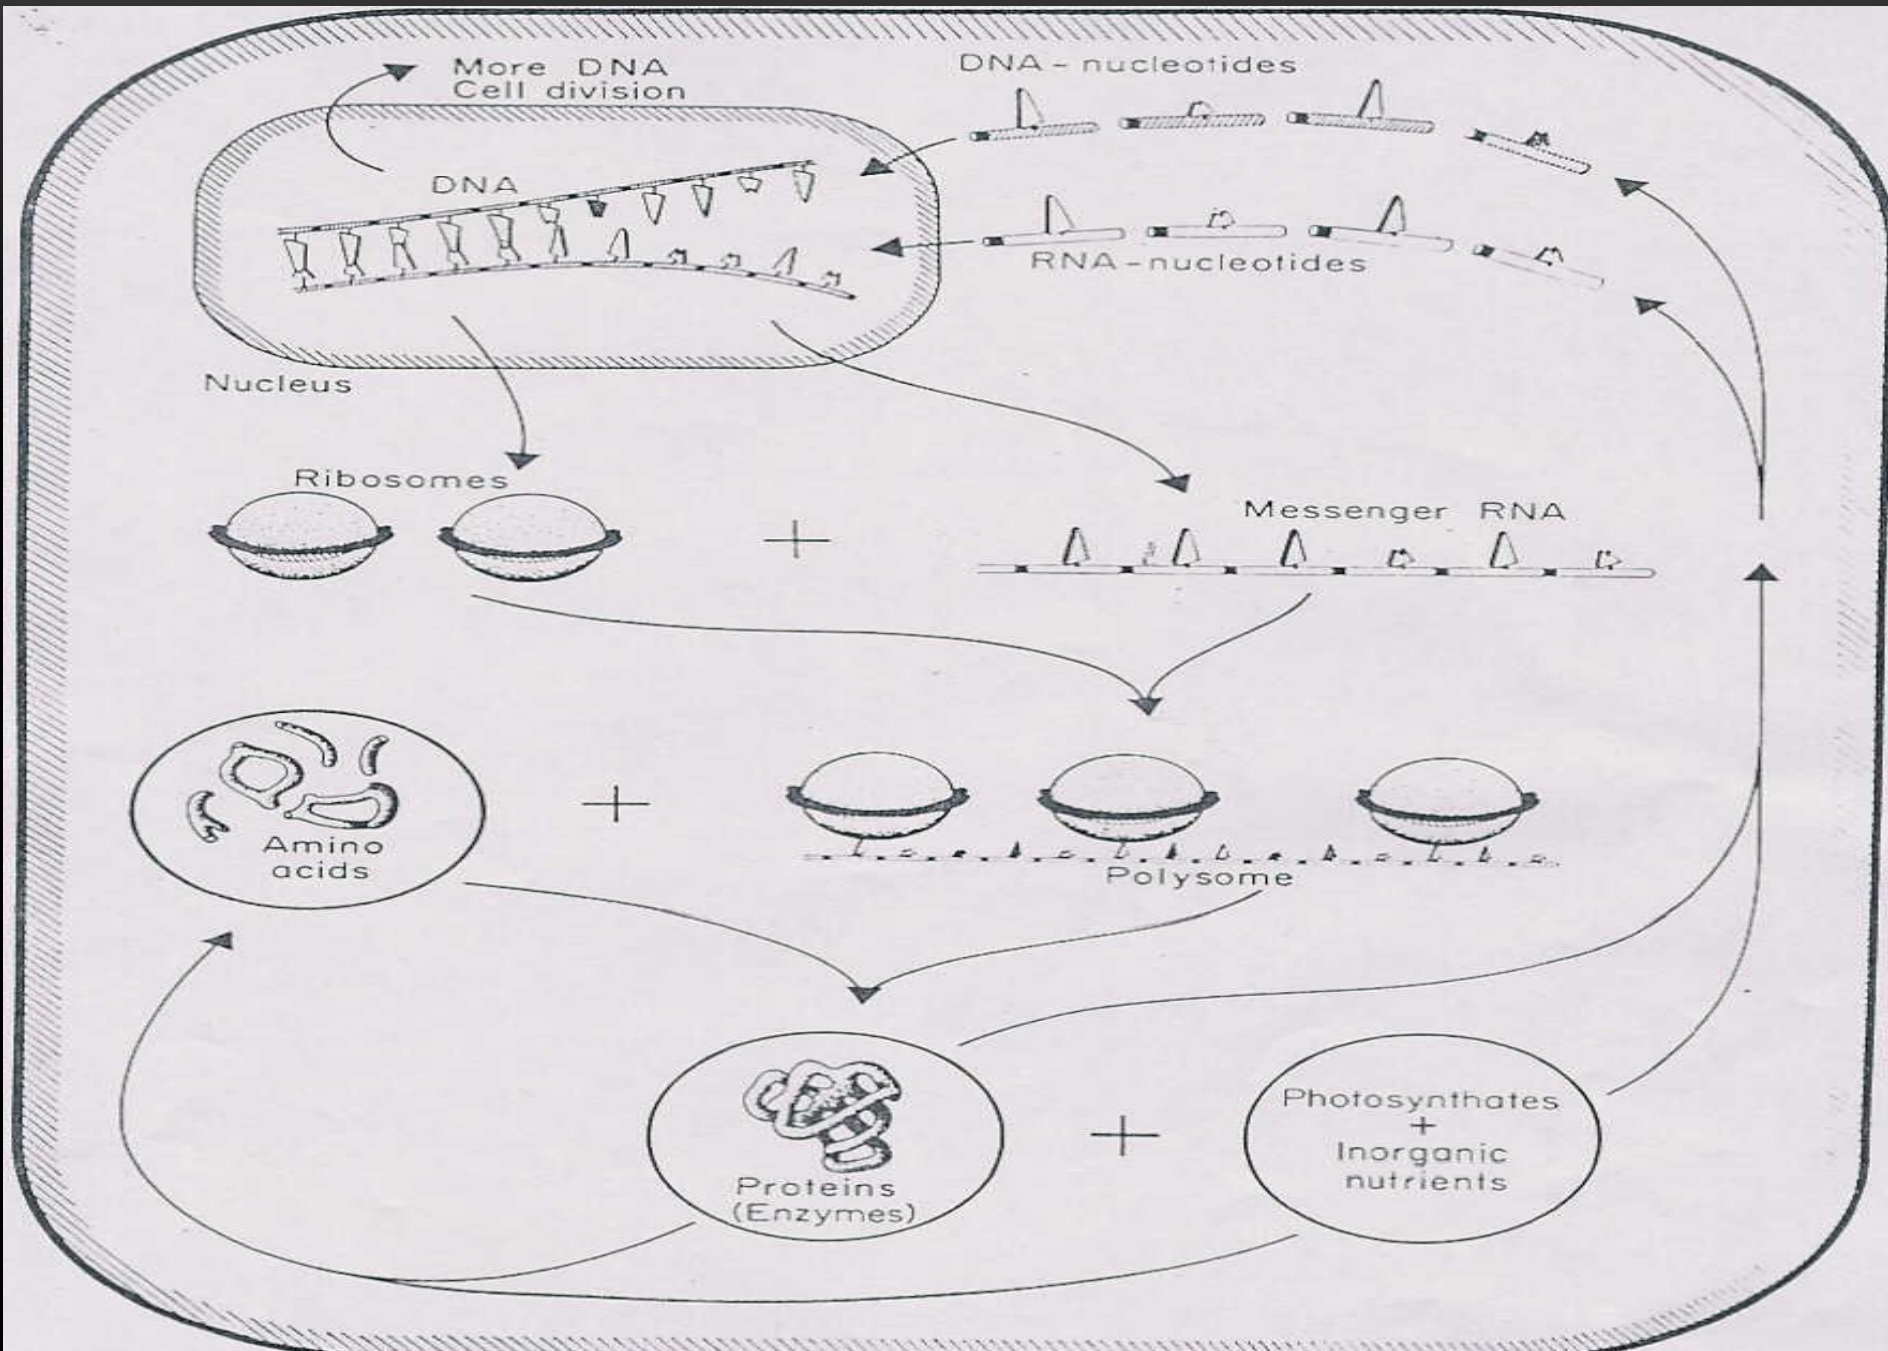 More DNA
Cell division
DNA - nucleotides
DNA
RNA - nucleotides
Nucleus
Ribosomes
+
Messenger RNA
Amino
acids
+
Polysome
Proteins
(Enzymes)
+
Photosynthates
+
Inorganic
nutrients